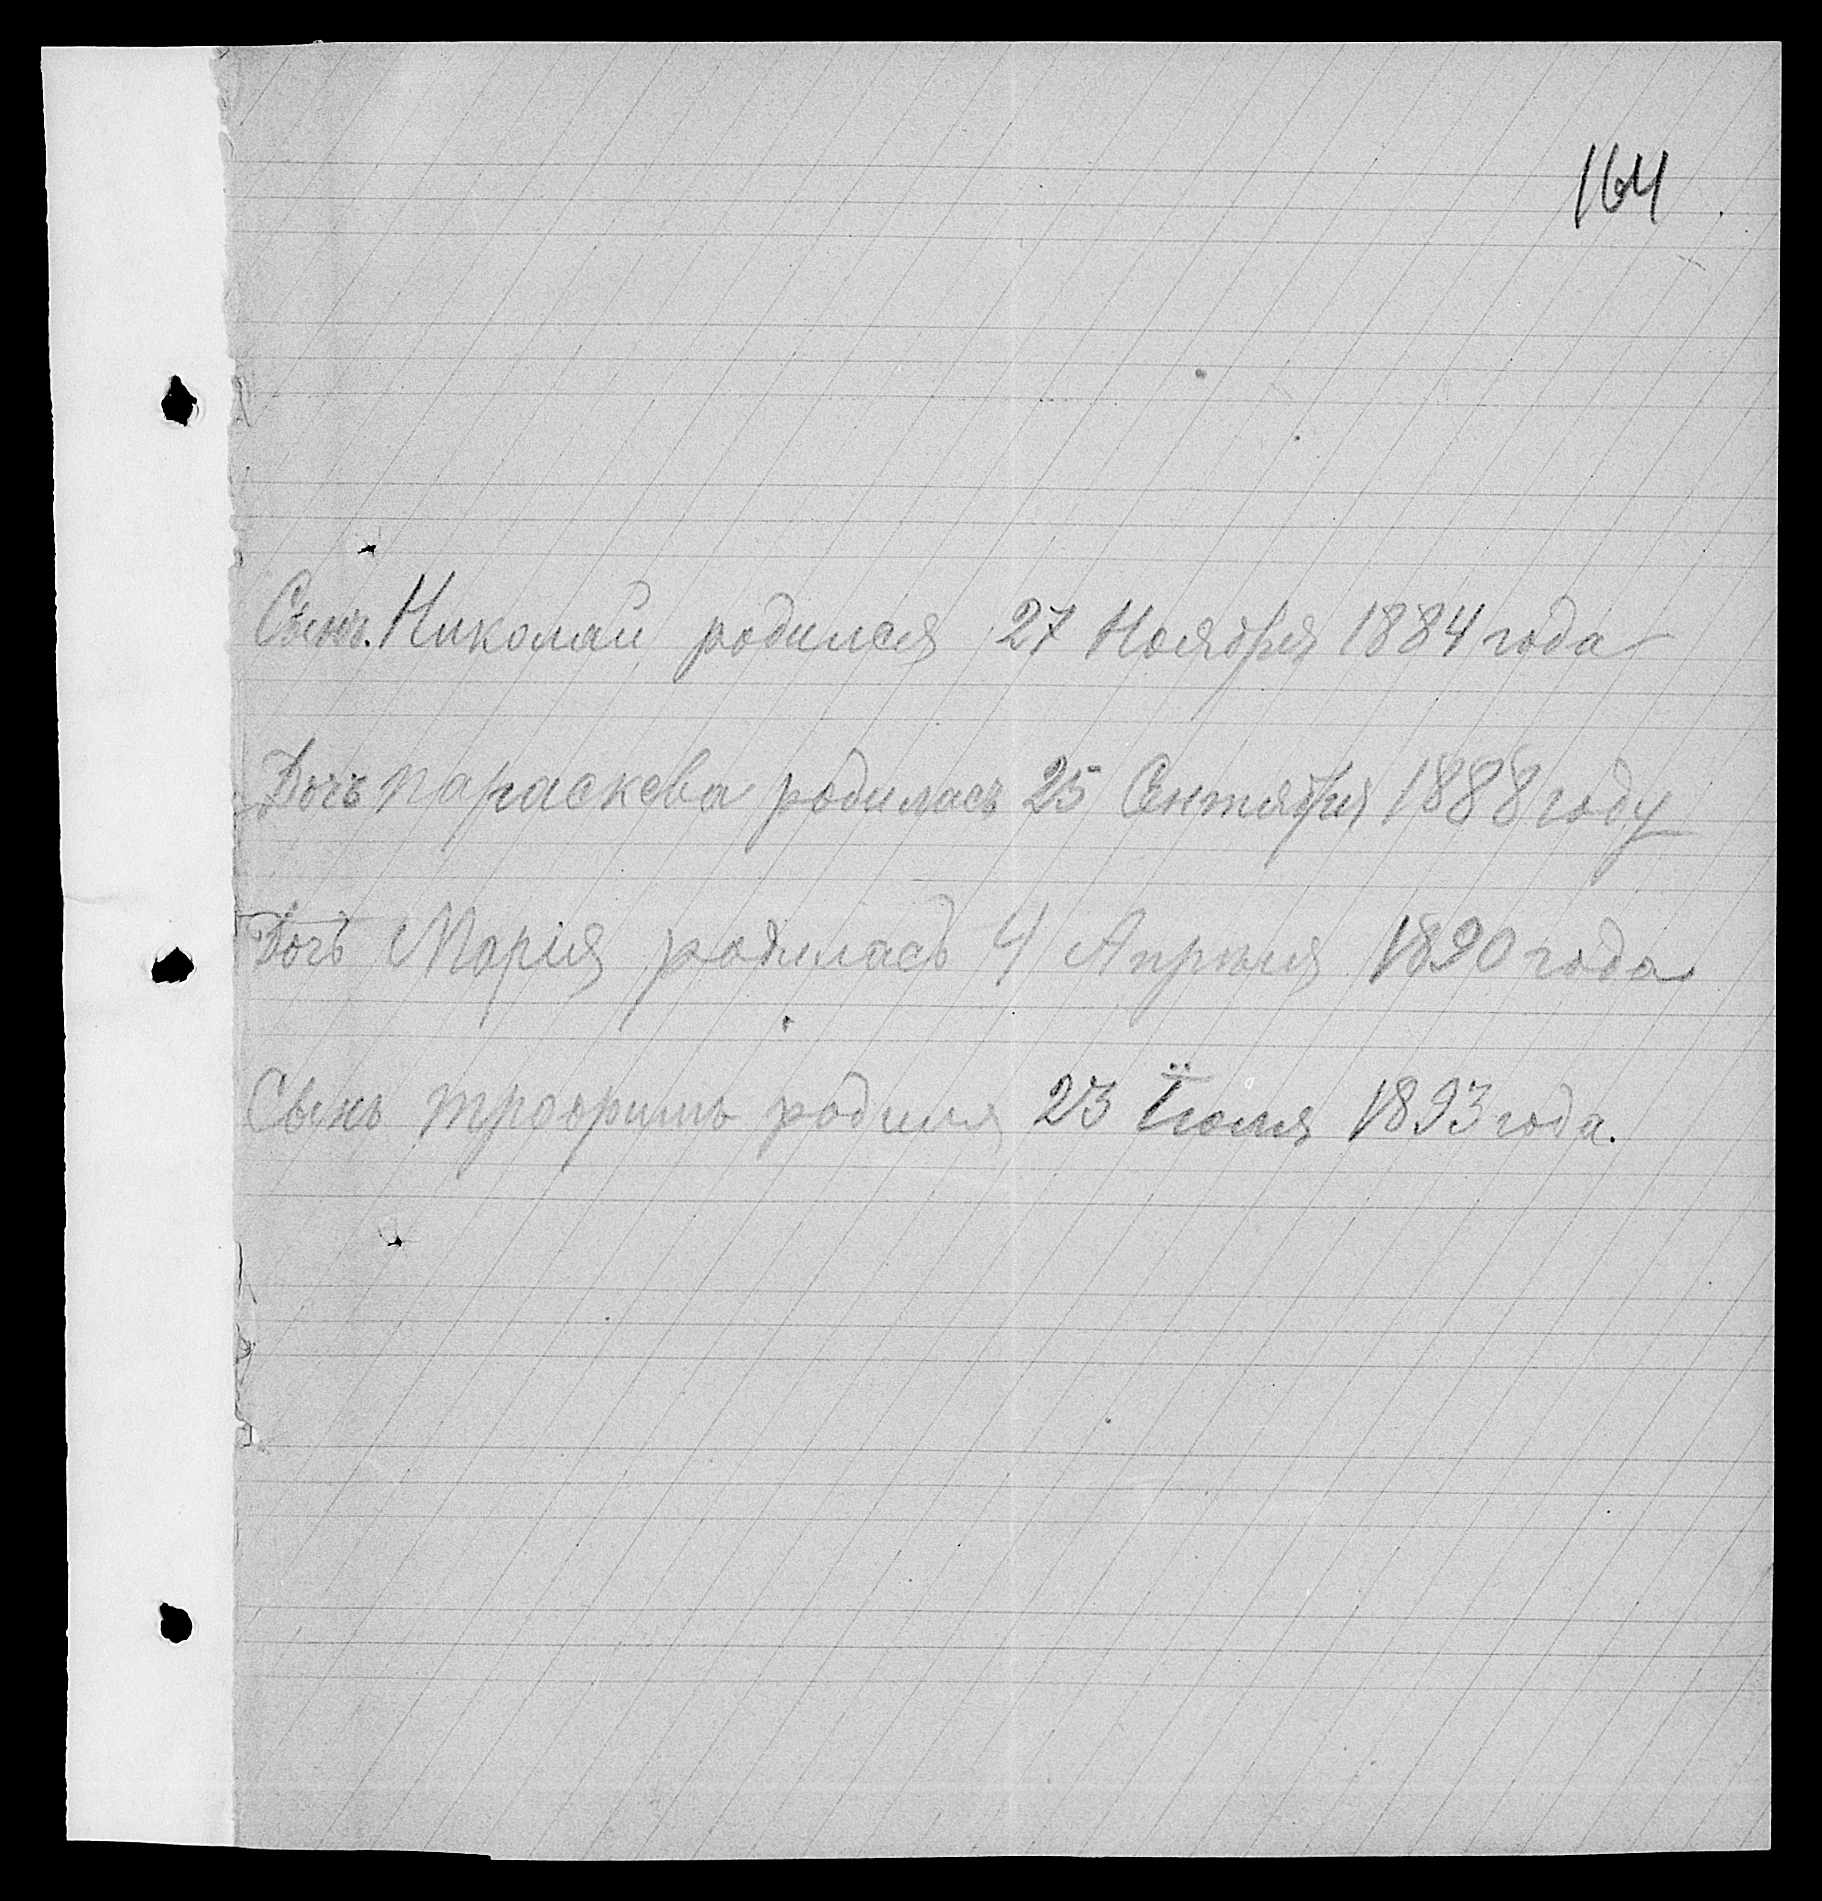 164
Сынъ. Николай родился 27 Ноября 1884 года
Дочь параскева родилась 25 Сентября 1888 году
Дочь Марія родилась 4 Апреля 1890 года
Сынъ трофимъ родился 23 Їюля 1893 года.